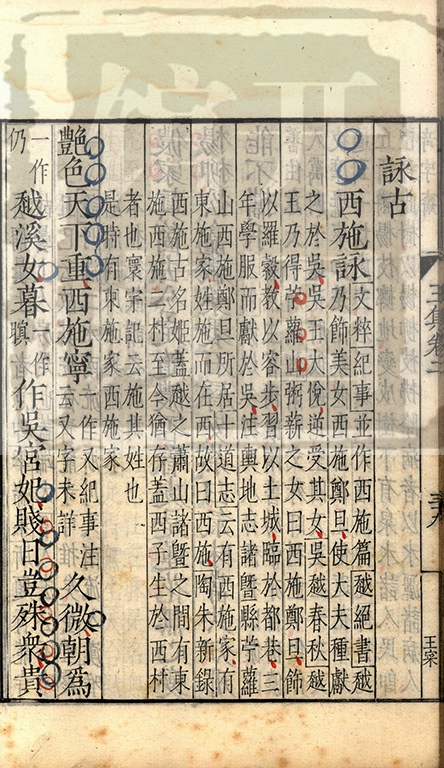 詠古
西施詠文粹紀事並作西施篇越絕書越
乃飾美女西施鄭旦使大夫種獻
之於吳吳王大悅遂受其女吳越春秋越
王乃得苧蘿山粥薪之女曰西施鄭旦飾
以羅縠教以容步習以土城臨於都巷三
年學服而獻於吳注輿地志諸暨縣苧蘿
山西施鄭旦所居十道志云有西施家有
東施家姓施而在西故曰西施陶朱新錄
西施古名姬蓋越之蕭山諸暨之間有東
施西施二村至今猶存蓋西子生於西村
者也寰宇記云施其姓也
是時有東施家西施家
艷色天下重西施寧一作又紀事注云又字未詳久微朝為
一作仍越溪女暮一作瞋作吳宮妃賤日豈殊眾貴
王集卷二